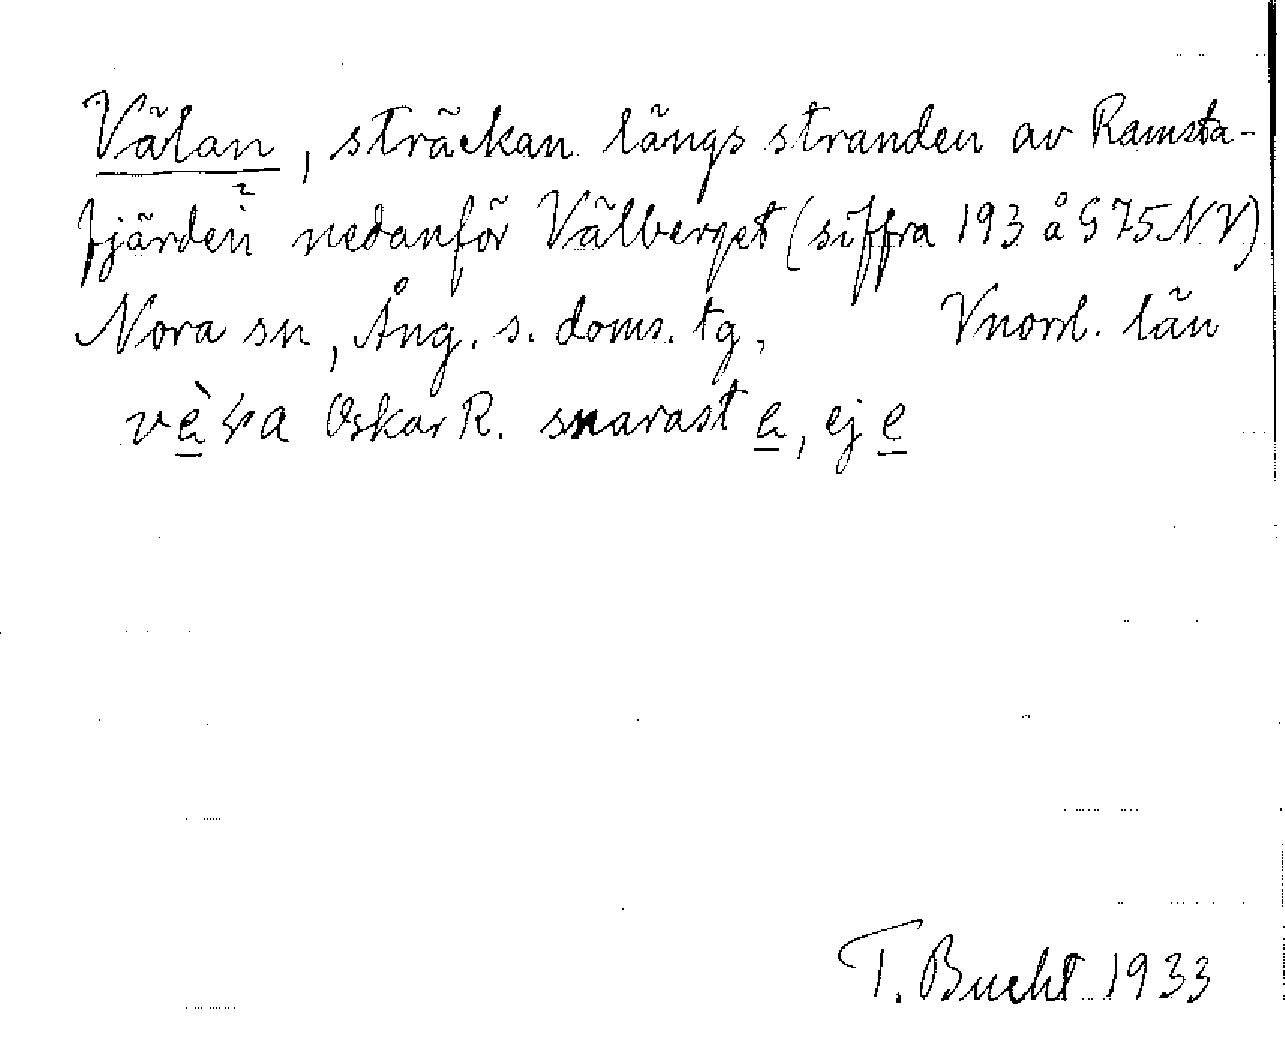 Välan, sträckan längs stranden av Ramsta-
fjärden nedanför Välberget (siffra 193 å G75NV)
Nora sn, Ång. s. doms. tg, Vnorrl. län
Oskar R. snarast e, ej e
T. Bucht 1933